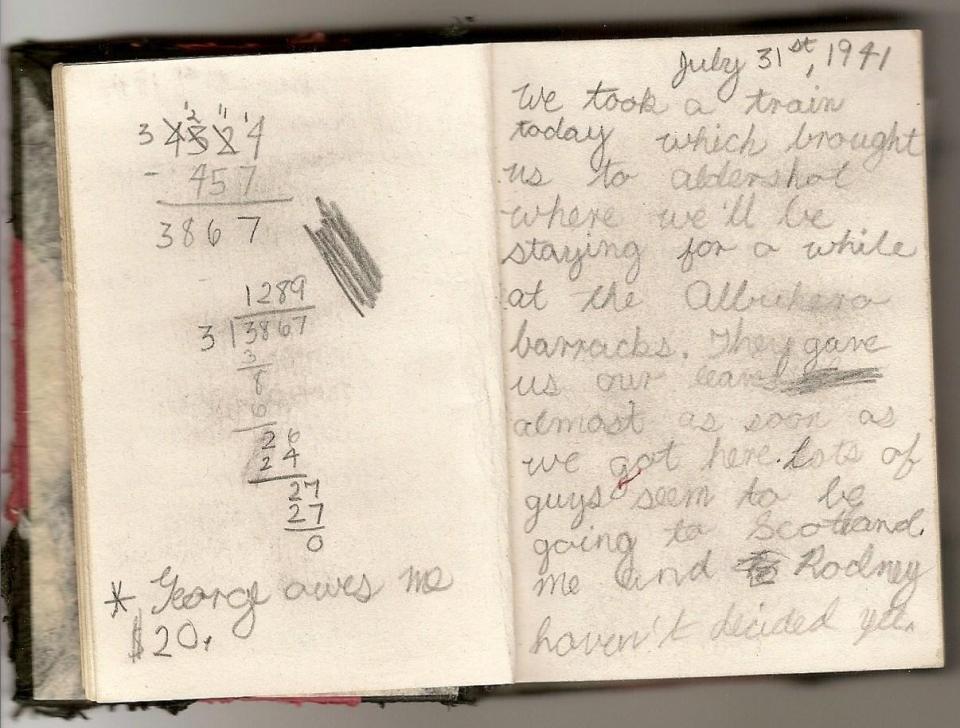 3 4324
- 457
3867
1289
3 3867
3
8
6
26
24
27
27
0
* George owes me
$20.
July 31st, 1941
We took a train
today which brought
us to aldershot
where we'll be
staying for a while
at the Albuhera
barracks. They gave
us our
almost as soon as
we got here. Lots of
guys seem to be
going to Scotland.
me and Rodney
haven't decided yet.